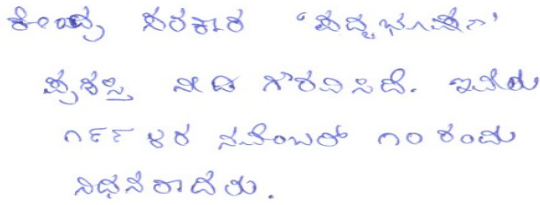 ಕೇಂದ್ರ ಸರಕಾರ 'ಪದ್ಮಭೂಷಣ'
ಪ್ರಶಸ್ತಿ ನೀಡಿ ಗೌರವಿಸಿದೆ. ಇವರು
೧೯೯೪ರ ನವೆಂಬರ್ ೧೦ರಂದು
ನಿಧನರಾದರು.